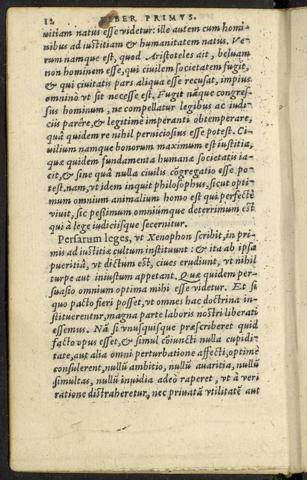 12 LIBER PRIMVS.
uitiam natus esse videtur: ille autem cum homi-
nibus ad iustitiam & humanitatem natus. Ve-
rum namque est, quod Aristoteles ait, beluam
non hominem esse, qui ciuilem societatem fugit,
& qui ciuitatis pars aliqua esse recusat, impius
omnino vt sit necesse est. Fugit nãque congres-
sus hominum, ne compellatur legibus ac iudi-
ciis parêre, & legitimè imperanti obtemperare,
quâ quidem re nihil perniciosius esse potest. Ci-
uilium namque bonorum maximum est iustitia,
quæ quidem fundamenta humanæ societatis ia-
cit, & sine quâ nulla ciuilis cõgregatio esse po-
test. nam, vt idem inquit philosophus, sicut opti-
mum omnium animalium homo est qui perfectè
viuit, sic pessimum omniúmque deterrimum est
qui à lege iudiciísque secernitur.
Persarum leges, vt Xenophon scribit, in pri-
mis ad iustitiæ cultum instituunt: & ita ab ipsa
pueritiâ, vt dictum est, ciues erudiunt, vt nihil
turpe aut iniustum appetant. Quæ quidem per-
suasio omnium optima mihi esse videtur. Et si
quo pacto fieri posset, vt omnes hac doctrina in-
stituerentur, magna parte laboris nostri liberati
essemus. Nã si vnusquisque præscriberet quid
facto opus esset, & simul cõiuncti nulla cupidi-
tate, aut alia omni perturbatione affecti, optimè
consulerent, nullũ ambitio, nullũ auaritia, nullũ
simultas, nullũ inuidia adeò raperet, vt à veri
ratione distraheretur, nec priuatã vtilitatẽ aut